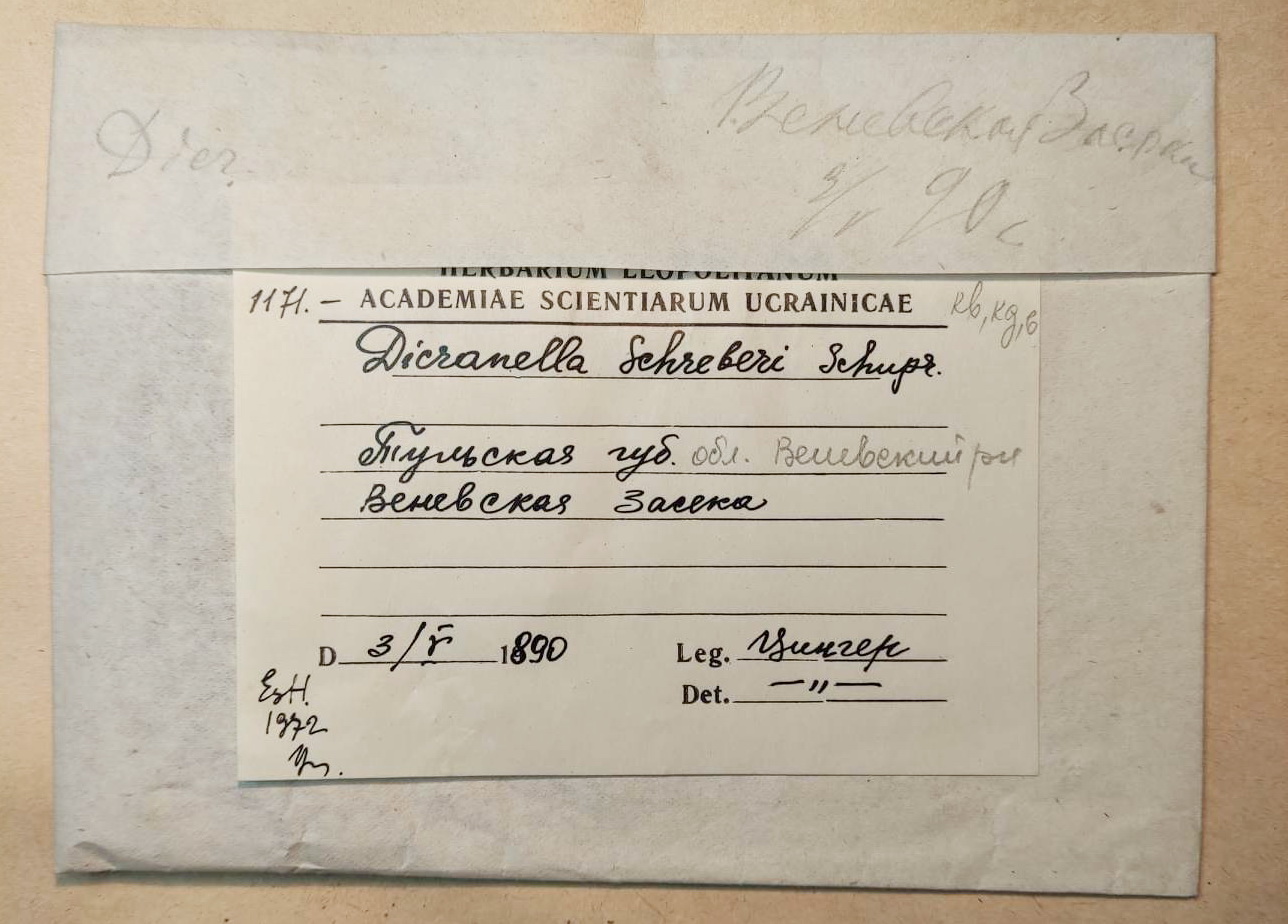 Dicr.
Веневская Засека
3/V 90 г
HERBARIUM LEOPOLITANUM
1171. — ACADEMIAE SCIENTIARUM UCRAINICAE
кв, кд, в
Dicranella Schreberi Schmpr.
Тульская губ. обл. Веневский рн
Веневская Засека
D 3/V 1890 Leg. Цингер
Det. —"—
1972